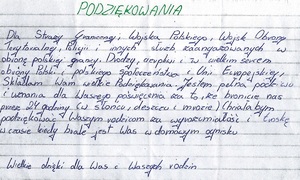 PODZIĘKOWANIA
Dla Straży Granicznej, Wojska Polskiego, Wojsk Obrony
Terytorialnej, Policji i innych służb zaangażowanych w
obronę polskiej granicy. Drodzy, cierpliwi i z wielkim sercem
obrońcy Polski i polskiego społeczeństwa i Unii Europejskiej,
Składam Wam wielkie Podziękowania. Jestem pełna podziwu
i uznania dla Waszego poświęcenia za to, że bronicie nas
przez 24 godziny (w słońcu, deszczu i mrozie) Chciałabym
podziękować Waszym rodzicom za wyrozumiałość i troskę
w czasie kiedy brakuje Was w domowym ognisku
Wielkie dzięki dla Was i Waszych rodzin